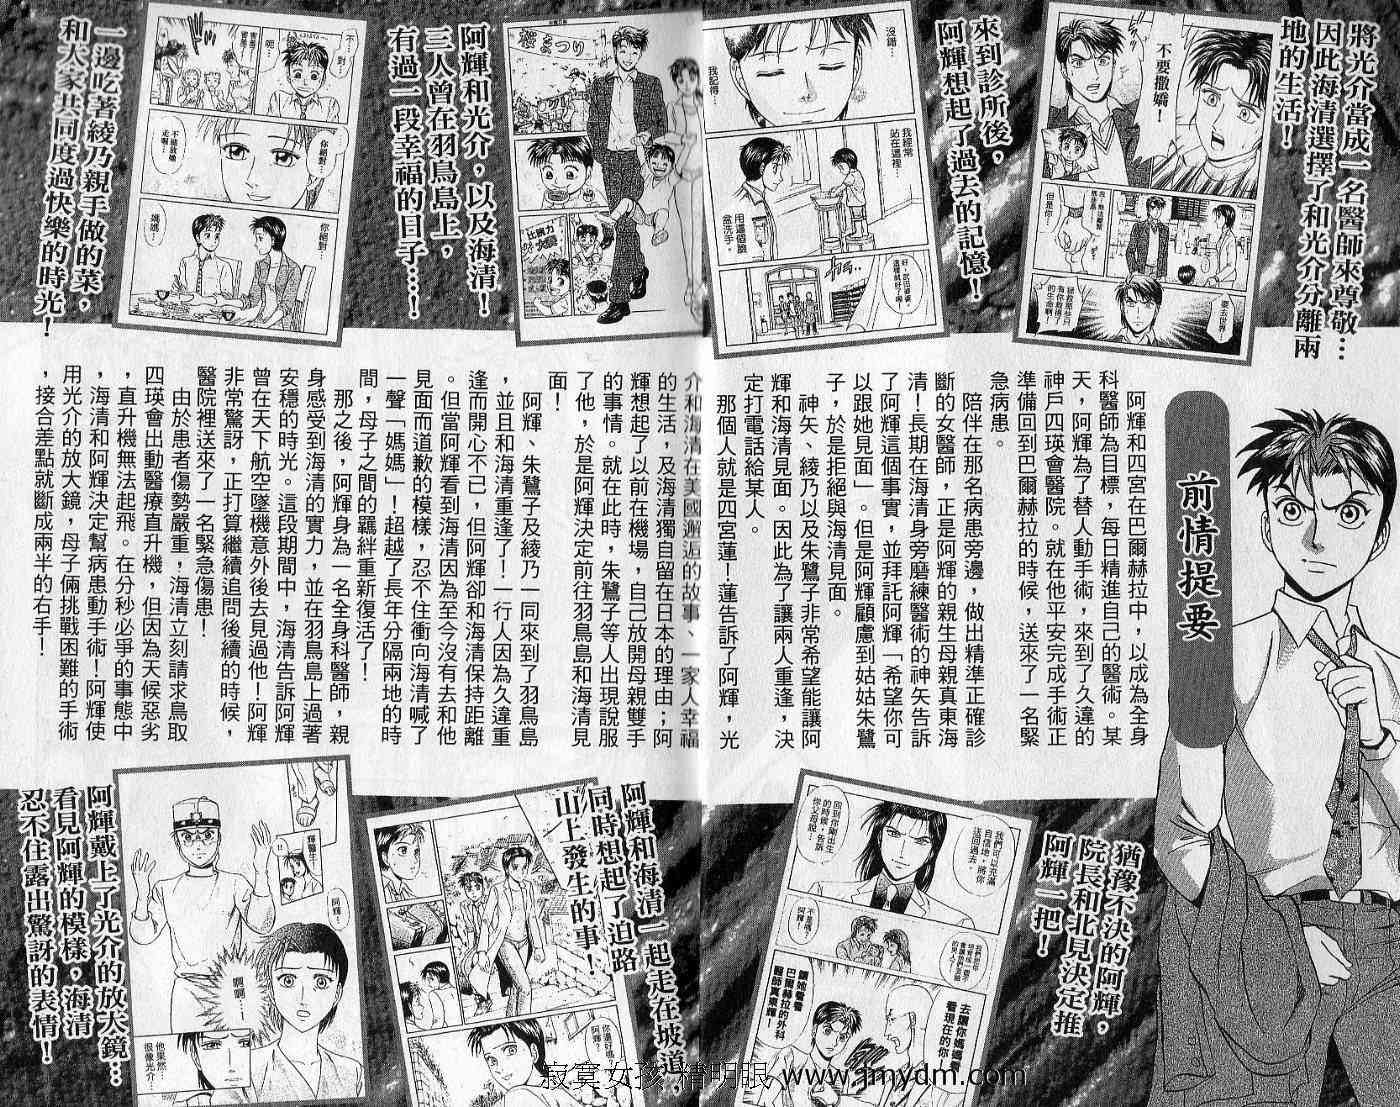 將光介當成一名醫師來尊敬…
因此海清選擇了和光介分離兩
地的生活！
不要撒嬌！
但是你…
要去世界…
拯救那些只
有你救得了
的生命啊！
來到診所後，
阿輝想起了過去的記憶！
沒錯…
我記得…
我經常
站在這裡…
用這個臉
盆洗手。
阿輝和光介，以及海清！
三人曾在羽鳥島上，
有過一段幸福的日子…！
桜まつり
一邊吃著綾乃親手做的菜，
和大家共同度過快樂的時光！
不…
對…
呃…
你絕對…
不能放她
走喔…
你絕對…
媽媽…
前情提要
阿輝和四宮在巴爾赫拉中，以成為全身
科醫師為目標，每日精進自己的醫術。某
天，阿輝為了替人動手術，來到了久違的
神戶四瑛會醫院。就在他平安完成手術正
準備回到巴爾赫拉的時候，送來了一名緊
急病患。
陪伴在那名病患旁邊，做出精準正確診
斷的女醫師，正是阿輝的親生母親真東海
清！長期在海清身旁磨練醫術的神矢告訴
了阿輝這個事實，並拜託阿輝「希望你可
以跟她見面」。但是阿輝顧慮到姑姑朱鷺
子，於是拒絕與海清見面。
神矢、綾乃以及朱鷺子非常希望能讓阿
輝和海清見面。因此為了讓兩人重逢，決
定打電話給某人。
那個人就是四宮蓮！蓮告訴了阿輝，光
介和海清在美國邂逅的故事、一家人幸福
的生活，及海清獨自留在日本的理由；阿
輝想起了以前在機場，自己放開母親雙手
的事情。就在此時，朱鷺子等人出現說服
了他，於是阿輝決定前往羽鳥島和海清見
面！
阿輝、朱鷺子及綾乃一同來到了羽鳥島
，並且和海清重逢了！一行人因為久違重
逢而開心不已，但阿輝卻和海清保持距離
。但當阿輝看到海清因為至今沒有去和他
見面而道歉的模樣，忍不住衝向海清喊了
一聲「媽媽」！超越了長年分隔兩地的時
間，母子之間的羈絆重新復活了！
那之後，阿輝身為一名全身科醫師，親
身感受到海清的實力，並在羽鳥島上過著
安穩的時光。這段期間中，海清告訴阿輝
曾在天下航空墜機意外後去見過他！阿輝
非常驚訝，正打算繼續追問後續的時候，
醫院裡送來了一名緊急傷患！
由於患者傷勢嚴重，海清立刻請求鳥取
四瑛會出動醫療直升機，但因為天候惡劣
，直升機無法起飛。在分秒必爭的事態中
，海清和阿輝決定幫病患動手術！阿輝使
用光介的放大鏡，母子倆挑戰困難的手術
，接合差點就斷成兩半的右手！
猶豫不決的阿輝，
院長和北見決定推
阿輝一把！
我們可以充滿
自信地，將你
送回過去。
回到你剛出生
的時候，告訴
你父母說…
不是嗎？
阿輝！
去讓你媽媽看
看現在的你！
讓她看看
巴爾赫拉的外科
醫師真東輝！
阿輝和海清一起走在坡道，
同時想起了迫路
山上發生的事！
你還好嗎？
阿輝！
阿輝戴上了光介的放大鏡…
看見阿輝的模樣，海清
忍不住露出驚訝的表情！
輝醫生！
阿輝…
啊啊…！
他果然…
很像光介…
寂寞女孩 精明眼 www.jmydm.com